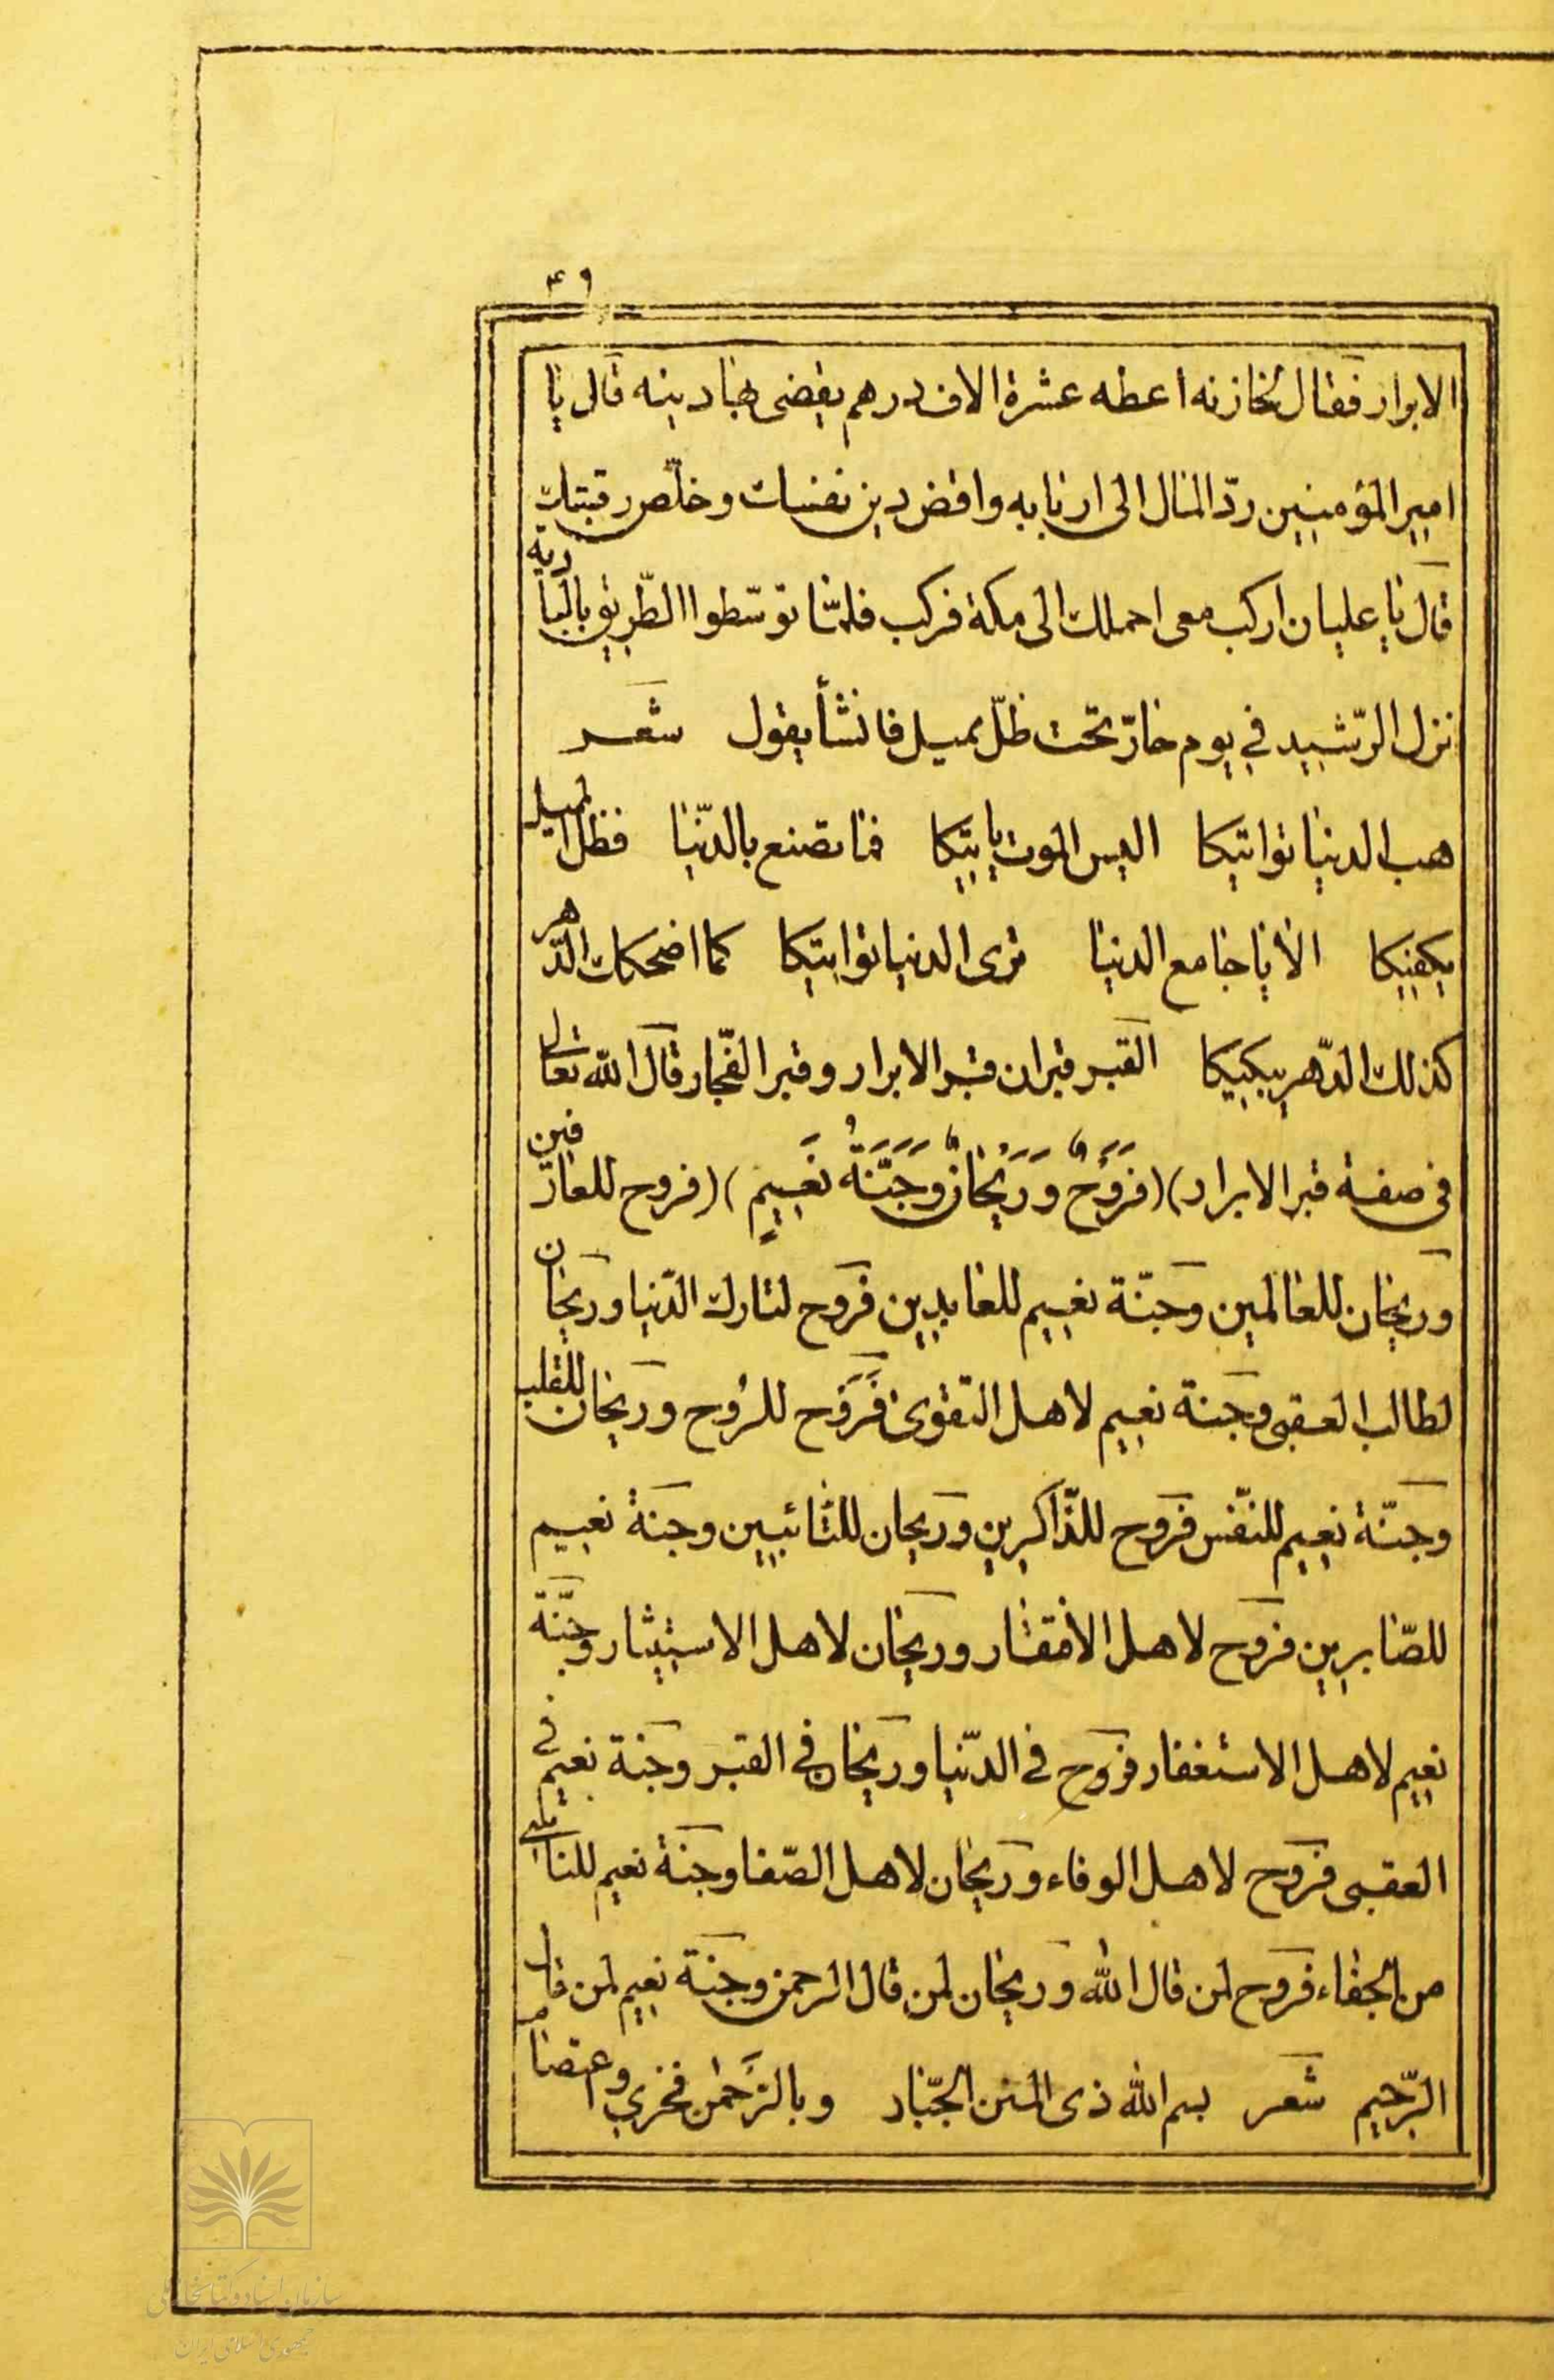 ۴۹
الابرار فقال لخازنه اعطه عشرة الاف درهم يقضى بها دينه قال يا
امير المؤمنين ردّ المال الى اربابه واقض دين نفسك وخلّص رقبتك
قال يا عليان اركب معى احملك الى مكة فركب فلمّا توسّطوا الطّريق بالبادية
نزل الرّشيد في يوم حارّ تحت ظلّ ميل فانشأ يقول شعر
هب الدنيا تواتيكا اليس الموت ياتيكا فما تصنع بالدّنيا فظل الميل
يكفيكا الا يا جامع الدنيا ترى الدنيا تواتيكا كما اضحكك الدّهر
كذلك الدّهر يبكيكا القبر قبران قبر الابرار وقبر الفجّار قال الله تعالى
في صفة قبر الابرار) (فَرَوْحٌ وَرَيْحَانٌ وَجَنَّةُ نَعِيمٍ) (فروح للعارفين
وريحان للعالمين وجنّة نعيم للعابدين فروح لتارك الدّنيا وريحان
لطالب العقبى وجنة نعيم لاهل التقوى فَرَوح للرُوح وريحان للقلب
وجنّة نعيم للنّفس فروح للذّاكرين وريحان للتائبين وجنة نعيم
للصّابرين فروح لاهل الافتقار وريحان لاهل الاستيثار وجنّة
نعيم لاهل الاستغفار فروح في الدّنيا وريحان في القبر وجنة نعيم في
العقبى فروح لاهل الوفاء وريحان لاهل الصّفا وجنة نعيم للناكبي
من الجفاء فروح لمن قال الله وريحان لمن قال الرحمن وجنّة نعيم لمن قال
الرّحيم شعر بسم الله ذى المنن الجبّار وبالرَّحمٰن فخري واعتصام
سازمان اسناد و کتابخانه ملی
جمهوری اسلامی ایران